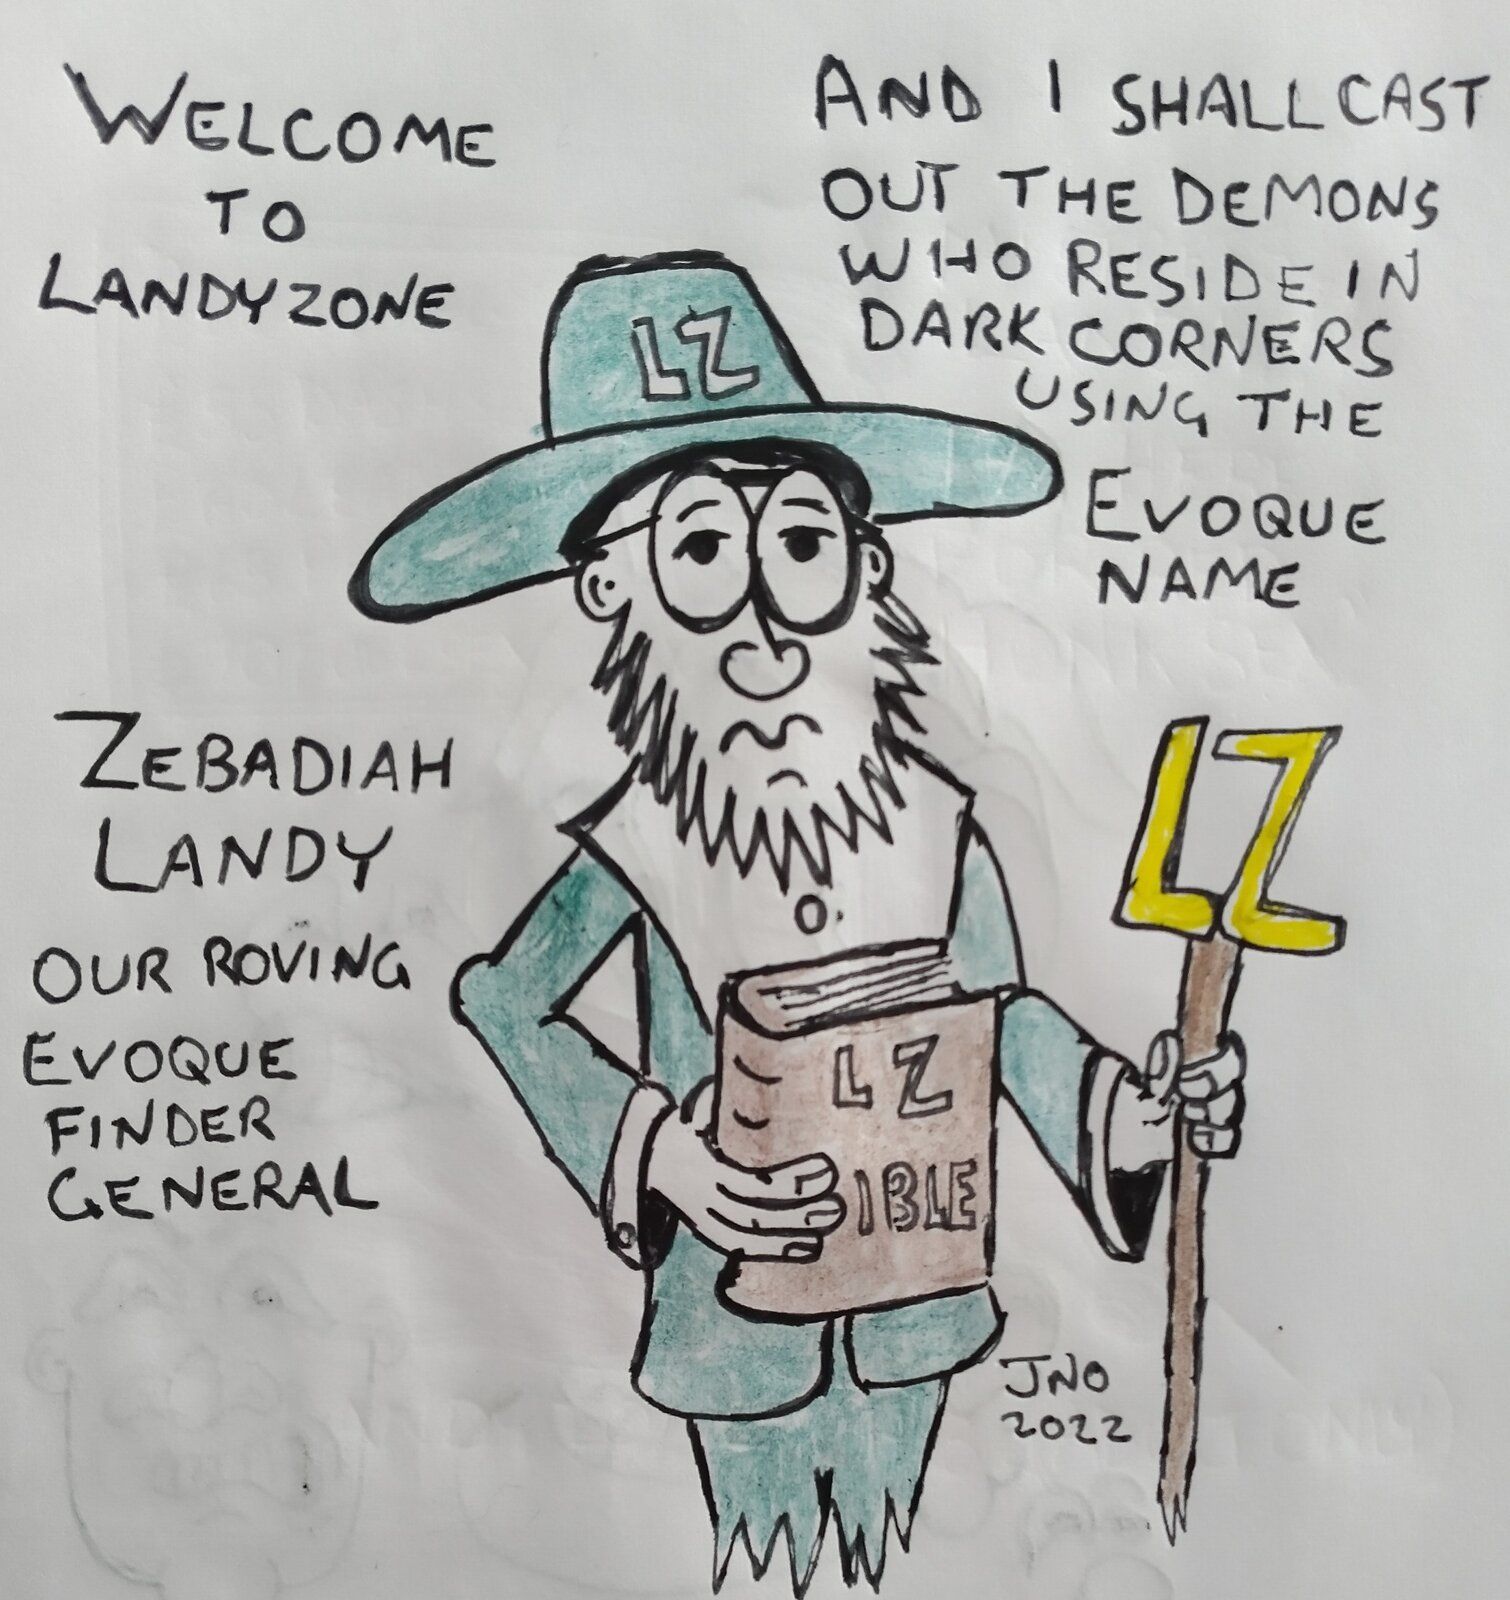 WELCOME
TO
LANDYZONE
AND I SHALL CAST
OUT THE DEMONS
WHO RESIDE IN
DARK CORNERS
USING THE
EVOQUE
NAME
LZ
ZEBADIAH
LANDY
OUR ROVING
EVOQUE
FINDER
GENERAL
LZ
LZ
IBLE
JNO
2022